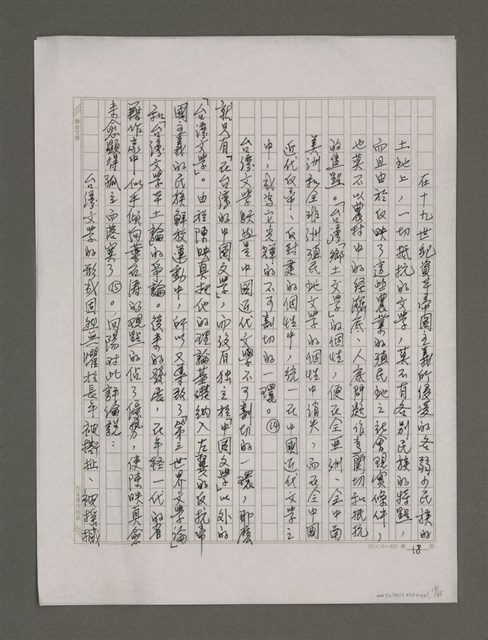 在十九世紀資本帝國主義所侵凌的各弱小民族的
土地上,一切抵抗的文學,莫不有各別民族的特點,
而且由於反映了這些農業的殖民地之社會現實條件,
也莫不以農村中的經驗底、人底問題作為關切和抵抗
的焦點。「台灣『鄉土文學』的個性,便在全亞洲、全中南
美洲和全非洲殖民地文學的個性中消失,而在全中國
近代反帝、反封建的個性中,統一在中國近代文學之
中,成為它光輝的不可割切的一環。⑭
台灣文學既然是中國近代文學不可割切的一環,那麼
就只有「在台灣的中國文學」,而沒有獨立於「中國文學」以外的
「台灣文學」。由於陳映真把他的理論基礎納入左翼的反抗帝
國主義的民族解放運動中,所以又導致了「第三世界文學論」
和「台灣文學本土論」的爭論。後來的發展,在年輕一代的省
籍作家中,似乎傾向葉石濤的觀點的佔了優勢,使陳映真愈
來愈顯得孤立而落寞了⑮。向陽對此評論說:
台灣文學的形成因為無懼於長年被撕扯、被摧殘
18